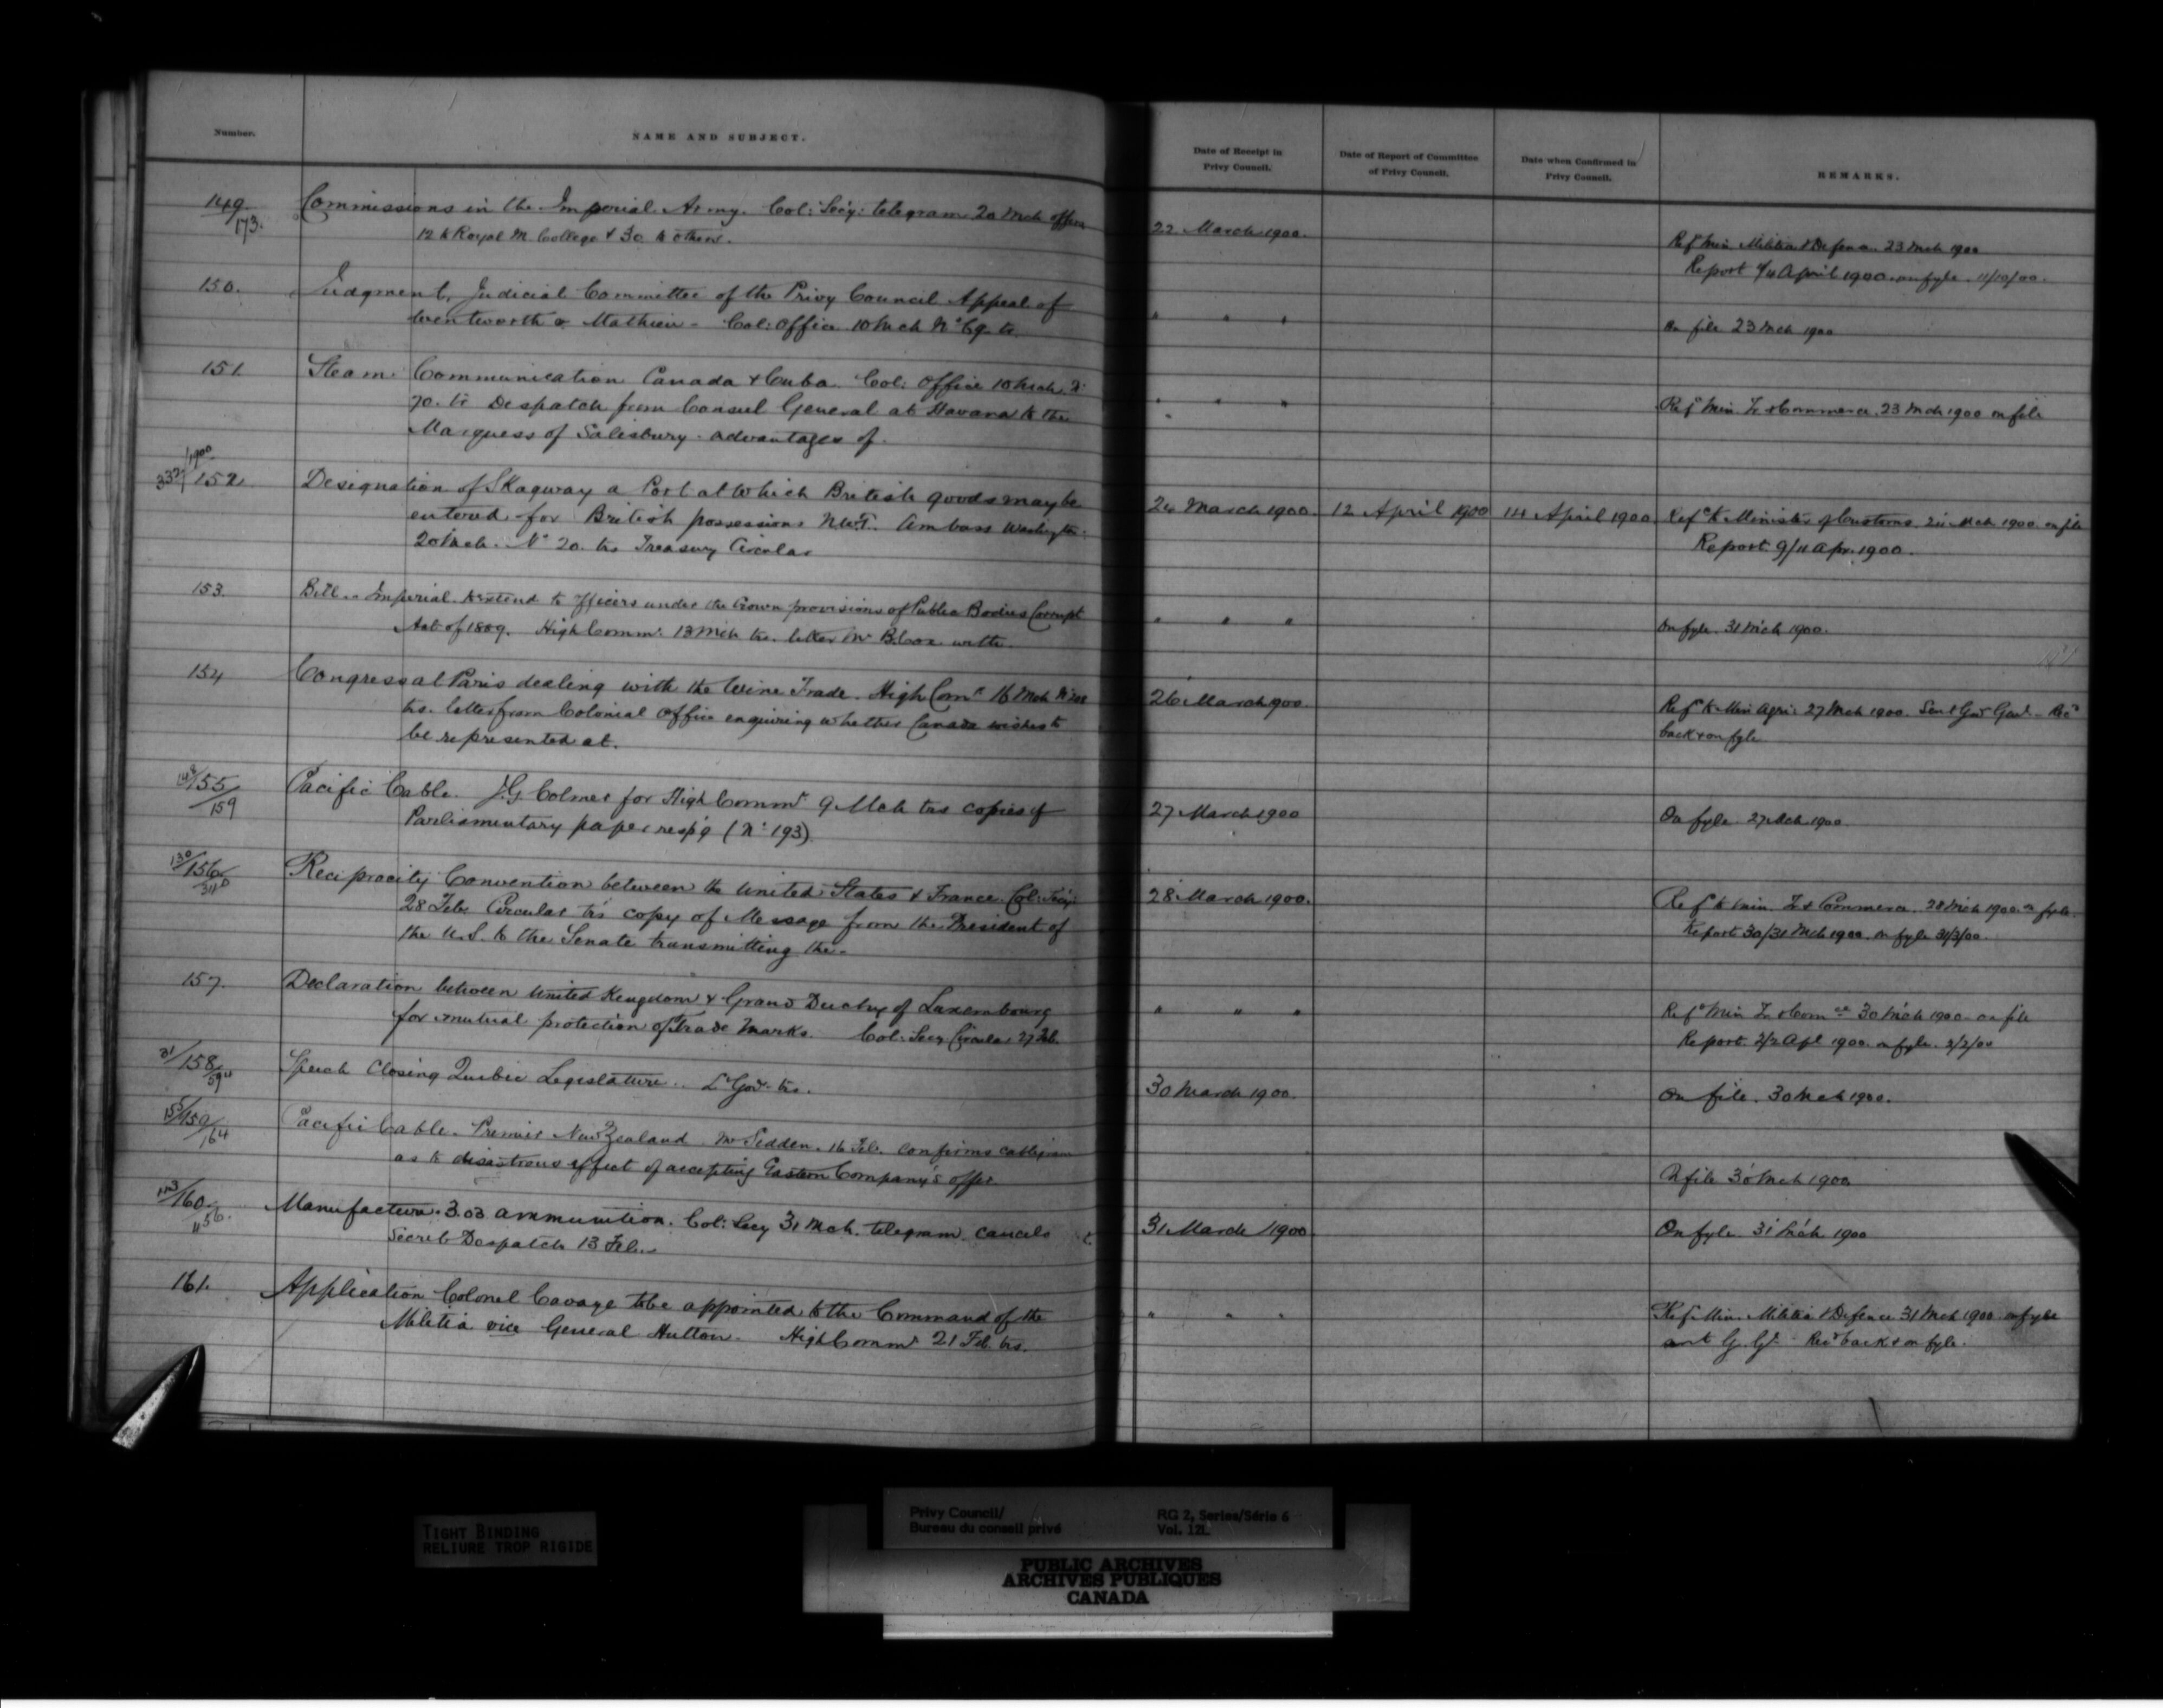 Number.
NAME AND SUBJECT.
Date of Receipt in
Privy Council.
Date of Report of Committee
of Privy Council.
Date when Confirmed in
Privy Council.
REMARKS.
149
173.
Commissions in the Imperial Army. Col: Secy: telegram 20 Mch offers
12 to Royal M. College & 30 to others.
22 March 1900.
Refd Min Militia & Defence 23 Mch 1900
Report April 1900 on fyle 11/10/00.
150.
Judgment, Judicial Committee of the Privy Council Appeal of
Wentworth v. Mathieu - Col: Office 10 Mch No 69 trs
" " "
On file 23 Mch 1900
151.
Steam Communication Canada & Cuba. Col: Office 10 Mch No
70. trs Despatch from Consul General at Havana to the
Marquess of Salisbury - advantages of.
" " "
Refd Min. Tr & Commerce. 23 Mch 1900 on file
332/1900
152
Designation of Skagway a Port at which British goods may be
entered for British possessions N.W.T. Ambass Washington
20 Mch. No 20. trs Treasury Circular
24 March 1900.
12 April 1900
14 April 1900
Refd to Minister of Customs 24 Mch 1900. on file
Report 9/11 Apr. 1900.
153.
Bill - Imperial to extend to Officers under the Crown provisions of Public Bodies Corrupt
Act of 1889. High Commr 13 Mch trs. letter Mr B. Cox with.
" " "
On fyle. 31 Mch 1900.
154
Congress at Paris dealing with the Wine Trade. High Comr 16 Mch
trs. letter from Colonial Office enquiring whether Canada wishes to
be represented at.
26 March 1900.
Refd to Min Agri: 27 Mch 1900. Sent Govr Genl - Recd
back & on fyle
148/155
159
Pacific Cable. J.G. Colmer for High Commr 9 Mch trs copies of
Parliamentary paper respg (No 193)
27 March 1900
On fyle 27 Mch 1900
130/156
Reciprocity Convention between the United States & France. Col: Secy:
28 Feb. Circular trs copy of Message from the President of
the U.S. to the Senate transmitting the -
28 March 1900.
Refd to Min. Tr & Commerce. 28 Mch 1900 on fyle.
Report 30/31 Mch 1900. on fyle 31/3/00.
157.
Declaration between United Kingdom & Grand Duchy of Luxembourg
for mutual protection of Trade Marks. Col: Secy Circular 27 Feb.
" " "
Refd Min Tr & Comce 30 Mch 1900 - on file
Report 2/2 Apl 1900. on fyle.
31/158
Speech Closing Quebec Legislature. Lt Govr trs.
30 March 1900.
On file. 30 Mch 1900.
155/159
164
Pacific Cable. Premier New Zealand Mr Sedden. 16 Feb. confirms cablegram
as to disastrous effect of accepting Eastern Company's offer
On file 30 Mch 1900
160
Manufacture .303 ammunition. Col: Secy 31 Mch. telegram cancels
Secret Despatch 13 Feb.
31 March 1900
On fyle 31 Mch 1900
161.
Application Colonel Cavaye to be appointed to the Command of the
Militia vice General Hutton. High Commr 21 Feb. trs.
" " "
Refd Min. Militia & Defence 31 Mch 1900 on fyle
Recd back & on fyle.
TIGHT BINDING
RELIURE TROP RIGIDE
Privy Council/
Bureau du conseil privé
RG 2, Series/Série 6
Vol. 121.
PUBLIC ARCHIVES
ARCHIVES PUBLIQUES
CANADA